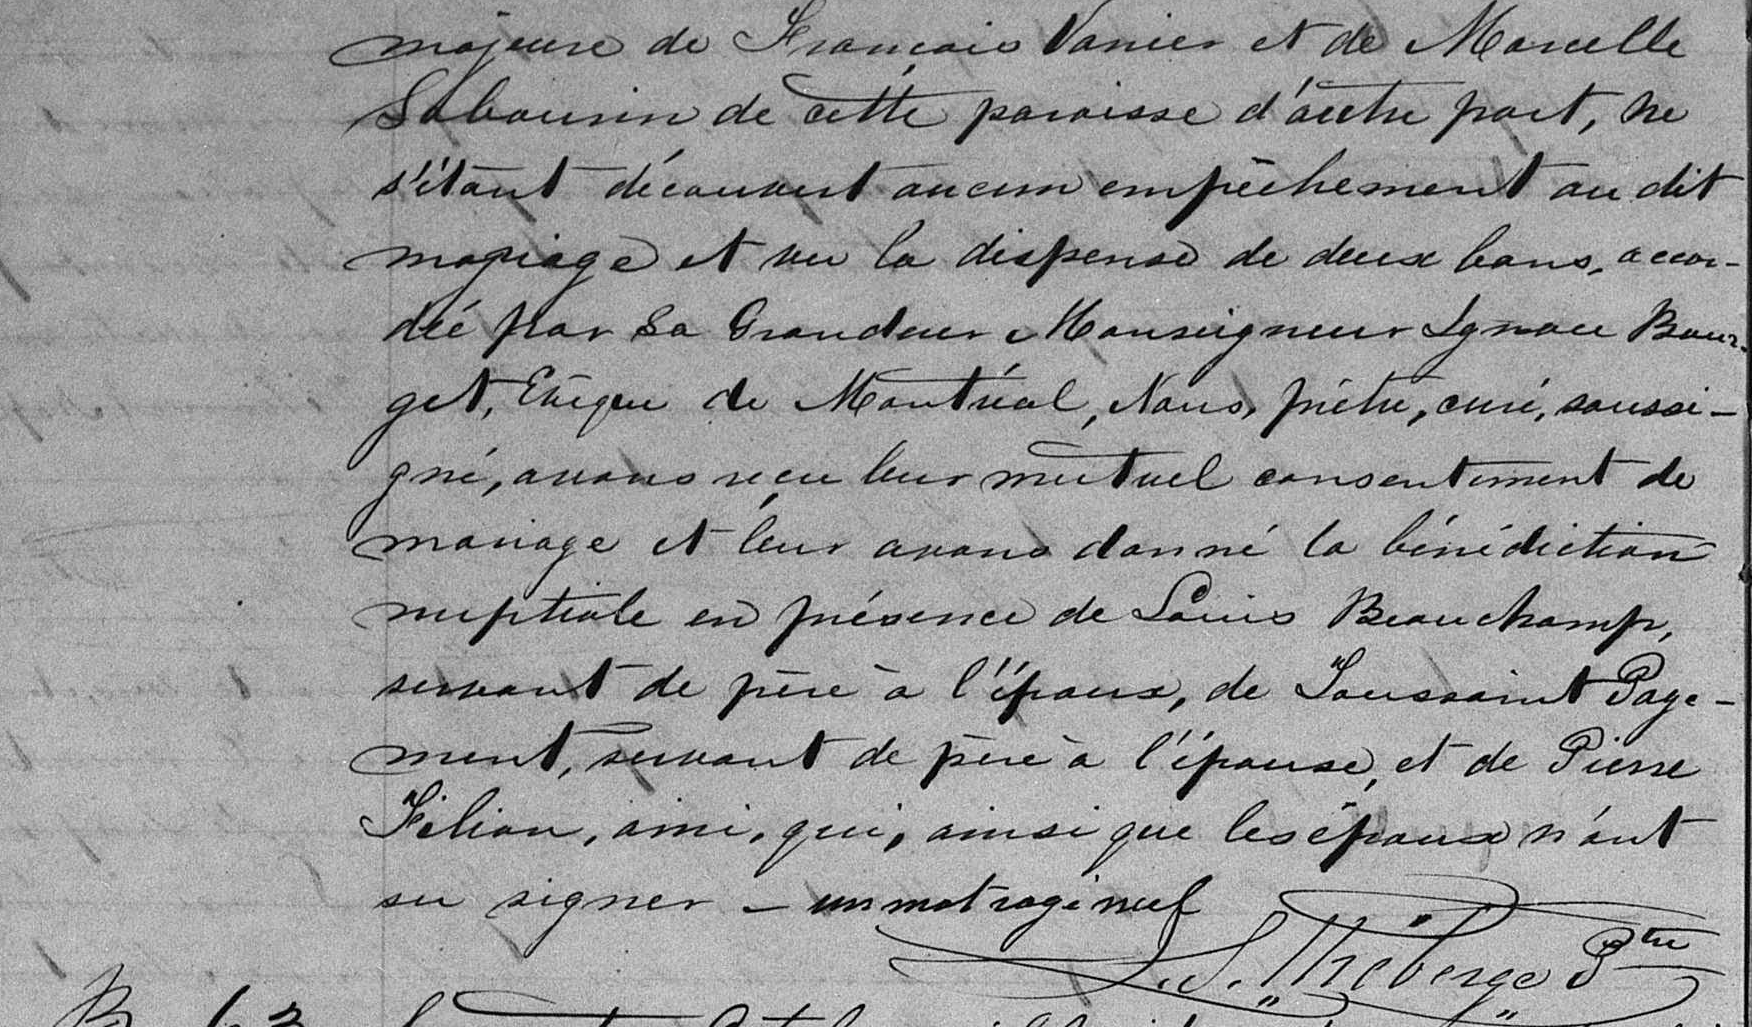 majeure de François Vanier et de Marcelle
Sabourin de cette paroisse d'autre part, ne
s'étant découvert aucun empêchement au dit
mariage et vu la dispense de deux bans, accor-
dée par Sa Grandeur Monseigneur Ignace Bour-
get, Evêque de Montréal, Nous, prêtre, curé, soussi-
gné, avons reçu leur mutuel consentement de
mariage et leur avons donné la bénédiction
nuptiale en présence de Louis Beauchamp,
servant de père à l'époux, de Toussaint Page-
ment, servant de père à l'épouse, et de Pierre
Filion, ami, qui, ainsi que les époux n'ont
su signer – un mot rayé nul
Théberge Ptre